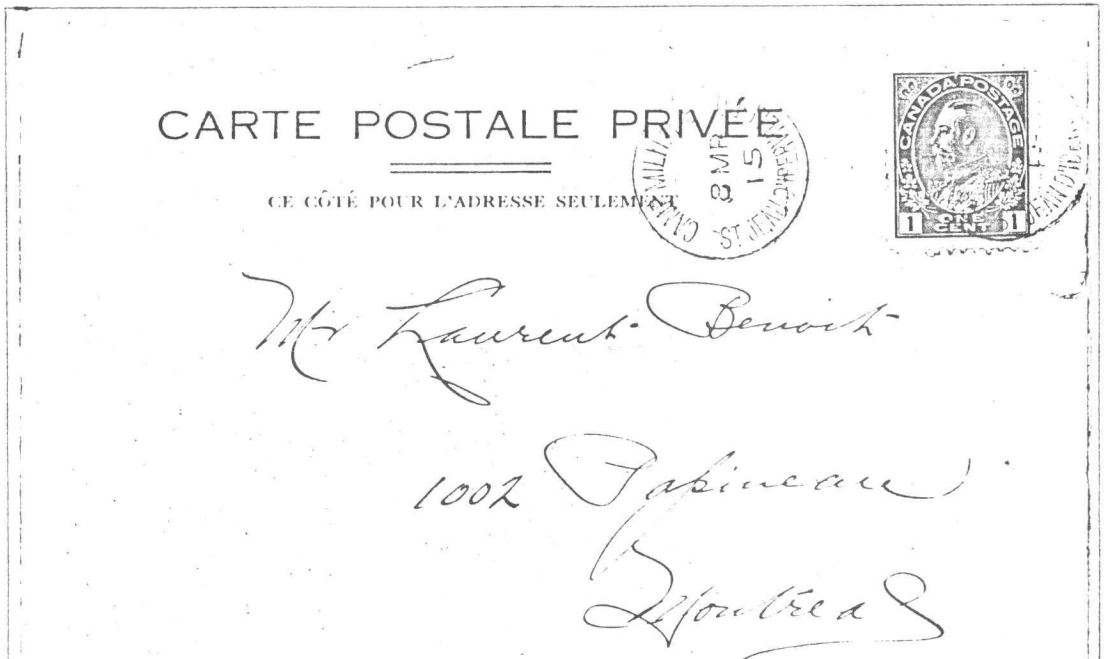 CARTE POSTALE PRIVÉE
CE CÔTÉ POUR L'ADRESSE SEULEMENT
8 MR
15
CANADA POSTAGE
1 ONE CENT 1
Mr Laurent Benoit
1002 Papineau
Montréal